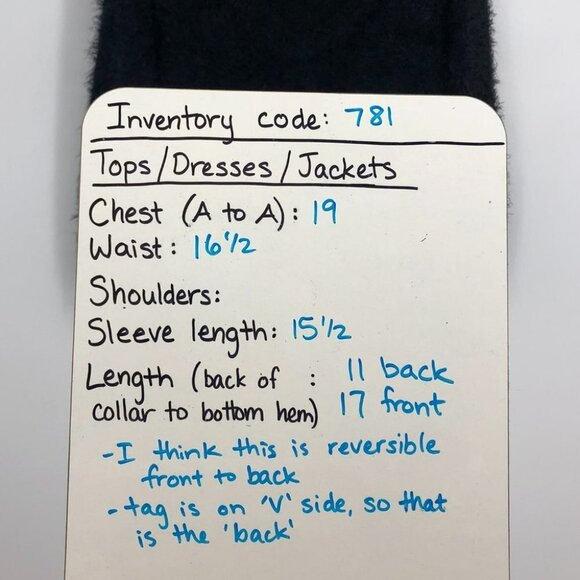 Inventory code: 781
Tops/Dresses/Jackets
Chest (A to A): 19
Waist: 16 1/2
Shoulders:
Sleeve length: 15 1/2
Length (back of : 11 back
collar to bottom hem) 17 front
-I think this is reversible
front to back
-tag is on 'V' side, so that
is the 'back'